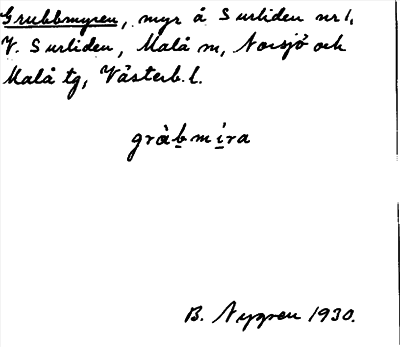 Grubbmyren, myr å Surliden nr 1,
V. Surliden, Malå m, Norsjö och
Malå tg, Västerb. l.
gràb̲mi̲ra
B. Nygren 1930.